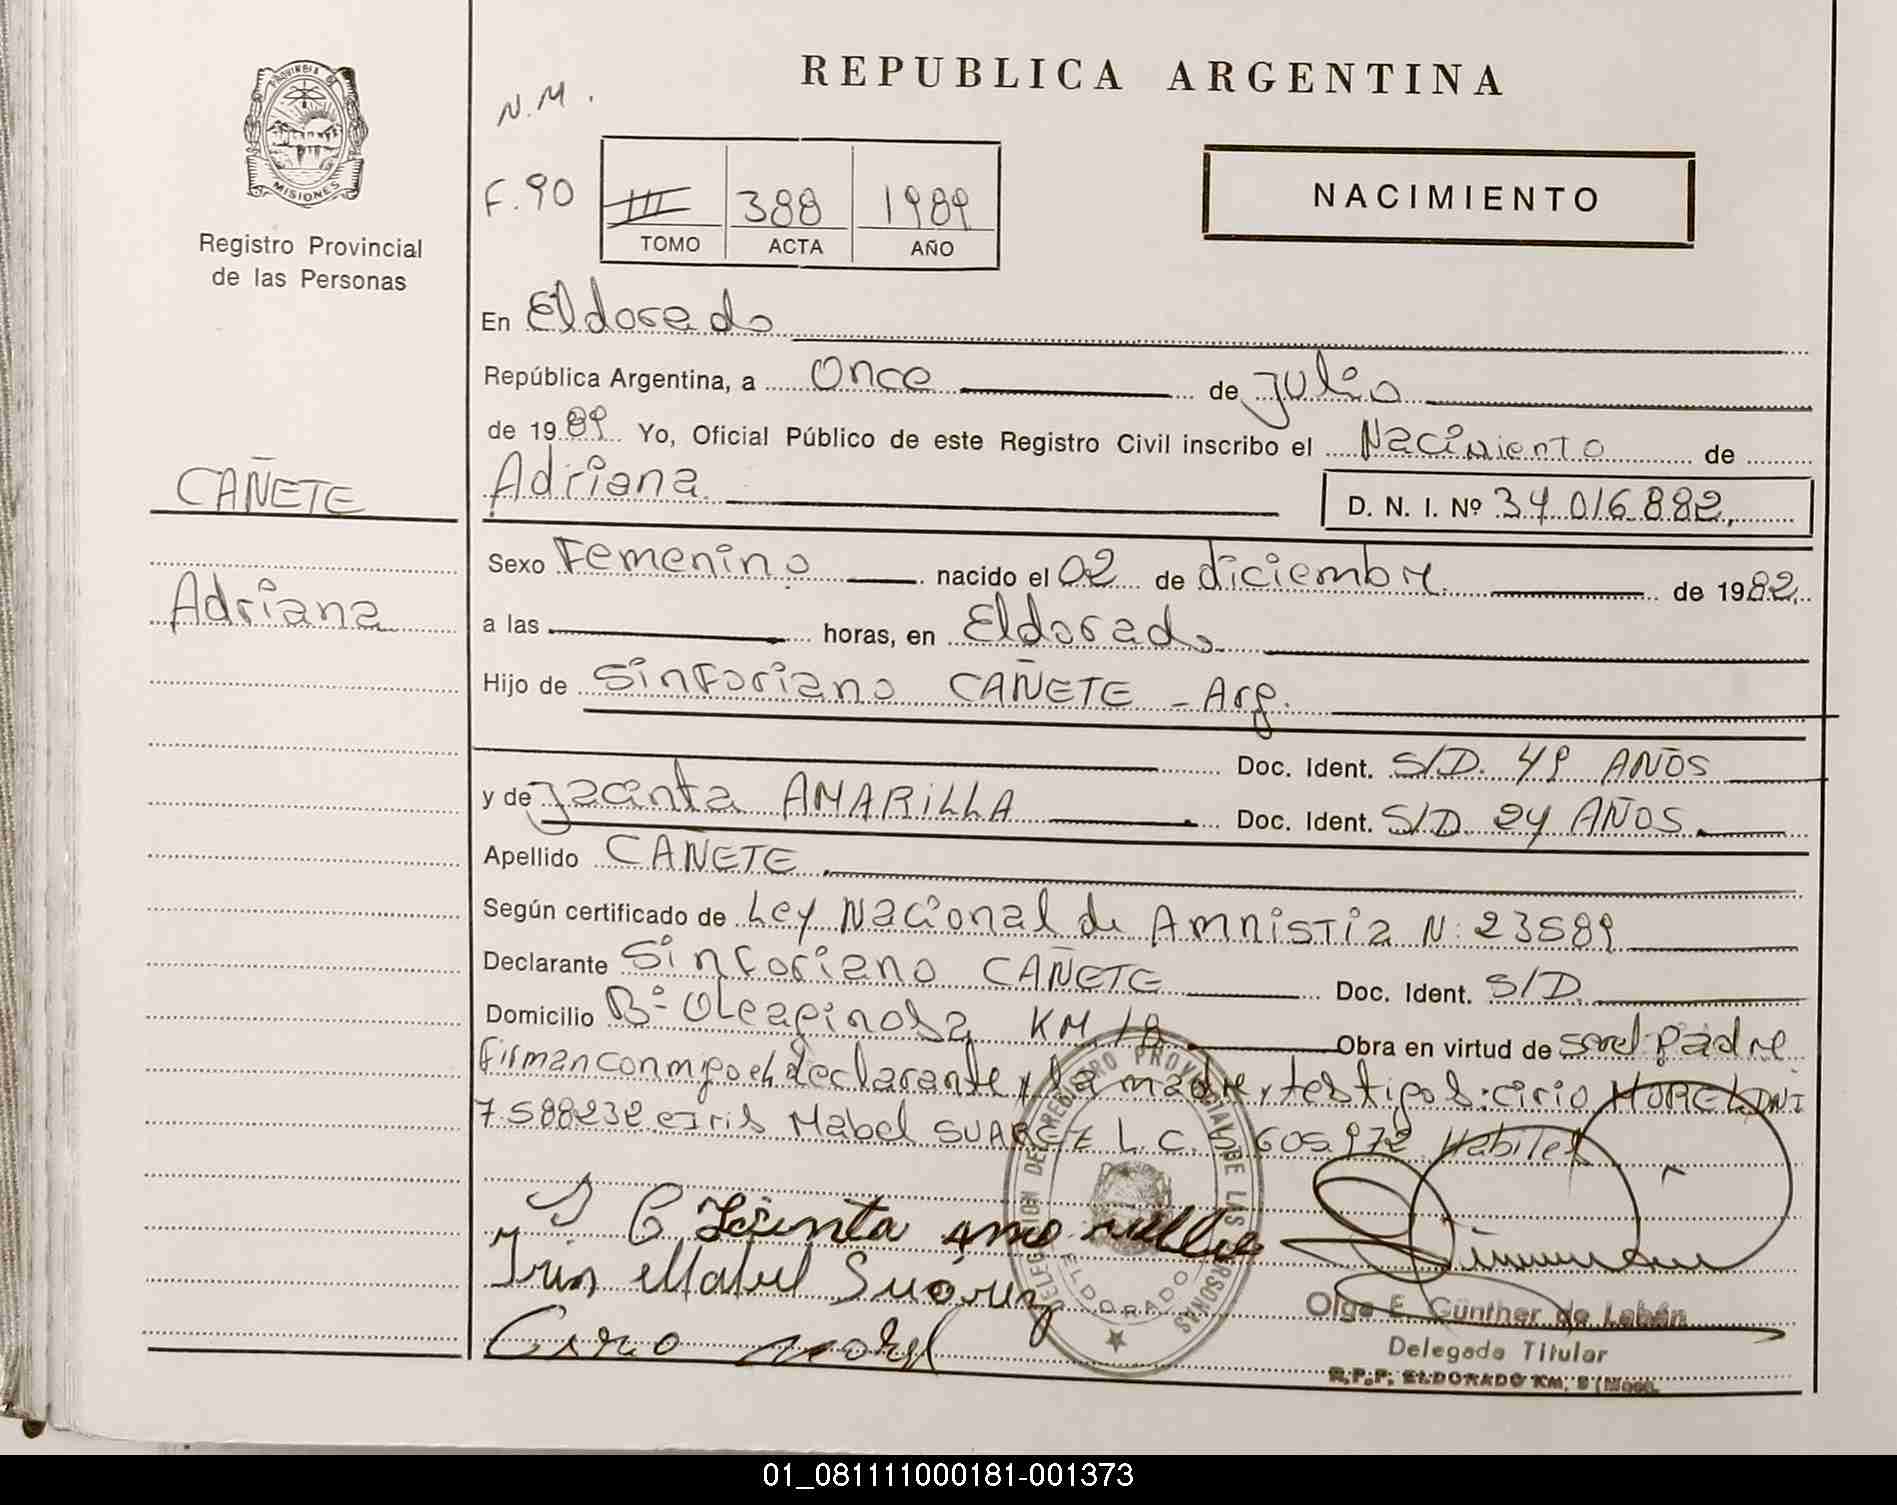 REPUBLICA ARGENTINA
PROVINCIA DE
MISIONES
Registro Provincial
de las Personas
N.M.
F.90
III 388 1989
TOMO ACTA AÑO
NACIMIENTO
En Eldorado
República Argentina, a Once de Julio
de 1989 Yo, Oficial Público de este Registro Civil inscribo el Nacimiento de
CAÑETE
Adriana
D. N. I. Nº 34.016.882.
Adriana
Sexo Femenino nacido el 02 de diciembre de 1982.
a las horas, en Eldorado
Hijo de Sinforiano CAÑETE - Arg.
Doc. Ident. S/D. 49 AÑOS
y de Jacinta AMARILLA Doc. Ident. S/D 24 AÑOS.
Apellido CAÑETE
Según certificado de Ley Nacional de Amnistia N: 23589
Declarante Sinforiano CAÑETE Doc. Ident. S/D.
Domicilio Bº Oleaginosa KM.18 Obra en virtud de ser el padre
Firman conmigo el declarante y la madre y testigos: cirio MOREL DNI
7.588232 e Iris Mabel SUAREZ L.C. 5.605.972 Habiles
DELEGACION DEL REGISTRO PROVINCIAL DE LAS PERSONAS
ELDORADO
S C Jacinta amarilla
Iris Mabel Suárez
Cirio morel
Olga E. Günther de Labán
Delegada Titular
R.P.P. ELDORADO KM. 9 (Mnes.
01_081111000181-001373